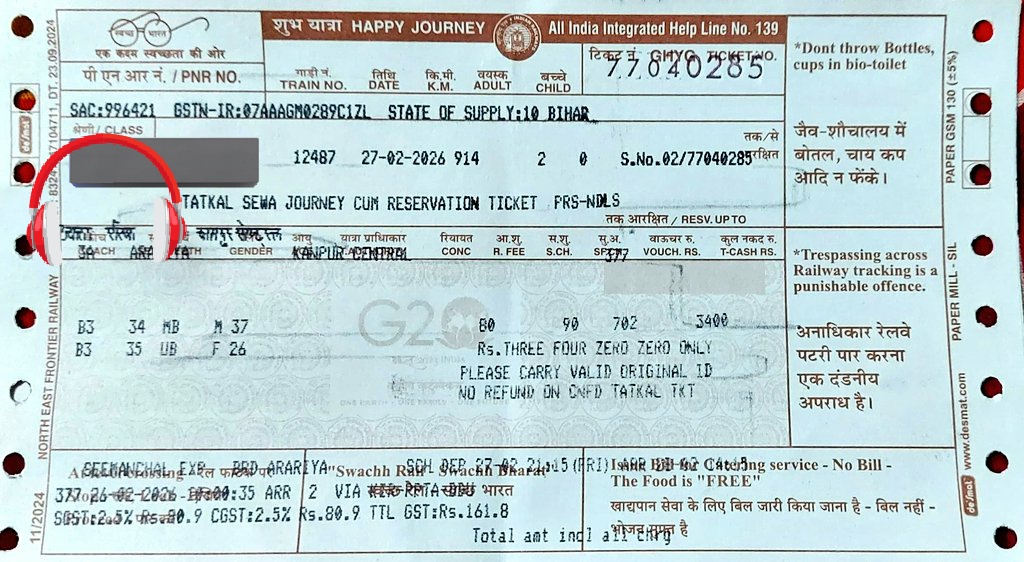 स्वच्छ भारत
एक कदम स्वच्छता की ओर
शुभ यात्रा HAPPY JOURNEY
All India Integrated Help Line No. 139
पी एन आर नं. / PNR NO.
गाड़ी नं. TRAIN NO.
तिथि DATE
कि.मी. K.M.
वयस्क ADULT
बच्चे CHILD
टिकट नं. GHYG TICKET NO.
77040285
SAC:996421 GSTN-IR:07AAAGM0289C1ZL STATE OF SUPPLY:10 BIHAR
श्रेणी / CLASS
तक/से
12487 27-02-2026 914 2 0 S.No.02/77040285
TATKAL SEWA JOURNEY CUM RESERVATION TICKET PRS-NDLS
तक आरक्षित / RESV. UP TO
GENDER
आयु
यात्रा प्राधिकार
रियायत CONC
आ.शु. R. FEE
स.शु. S.CH.
सु.अ.
वाऊचर रु. VOUCH. RS.
कुल नकद रु. T-CASH RS.
KANPUR CENTRAL 377
G20
B3 34 MB M 37 80 90 702 3400
B3 35 UB F 26 Rs.THREE FOUR ZERO ZERO ONLY
PLEASE CARRY VALID ORIGINAL ID
NO REFUND ON CNFD TATKAL TKT
SEEMANCHAL EXP BRD ARARIYA SCH DEP 27-02 21:15(FRI) ARR
"Swachh Rail - Swachh Bharat"
377 26-02-2026 ARR 2 VIA
SGST:2.5% Rs.80.9 CGST:2.5% Rs.80.9 TTL GST:Rs.161.8
Total amt incl all chrg
for Catering service - No Bill -
The Food is "FREE"
खाद्यपान सेवा के लिए बिल जारी किया जाना है - बिल नहीं -
भोजन मुफ्त है
*Dont throw Bottles,
cups in bio-toilet
जैव-शौचालय में
बोतल, चाय कप
आदि न फेंके।
*Trespassing across
Railway tracking is a
punishable offence.
अनाधिकार रेलवे
पटरी पार करना
एक दंडनीय
अपराध है।
PAPER GSM 130 (±5%)
PAPER MILL - SIL
www.desmat.com
desmat
NORTH EAST FRONTIER RAILWAY
DT, 23.09.2024
11/2024